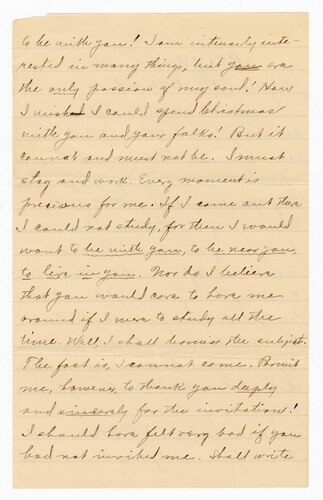 to be with you! I am intensely inte-
rested in many things, but you are
the only passion of my soul! How
I wished I could spend Christmas
with you and your folks! But it
cannot and must not be. I must
stay and work. Every moment is
precious for me. If I came out there
I could not study, for then I would
want to be with you, to be near you,
to live in you. Nor do I believe
that you would care to have me
around if I were to study all the
time. Well, I shall dismiss the subject.
The fact is, I cannot come. Permit
me, however, to thank you deeply
and sincerely for the invitation!
I should have felt very bad if you
had not invited me. Shall write